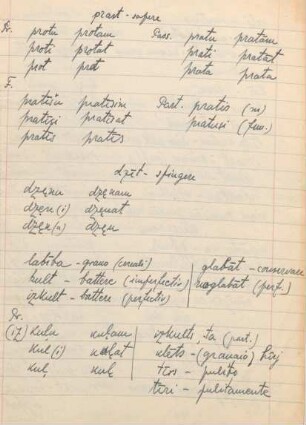 prast - sapere
Pr. protu protam Pass. pratu pratām
proti protat prati pratat
prot prot prata prata
F.
pratišu pratisim Part. pratis (m)
pratisi pratisat pratusi (fem.)
pratis pratis
dzīt - spingere
dzęnu dzęnam
dzęn(i) dzęnat
dzęn(n) dzęn
labība - grano (cereali) glabāt - conservare
kult - battere (imperfectiv) noglabāt (perf.)
izkult - battere (perfectiv)
Pr.
(iz) kuļu kuļam izkults, ta (part.)
kul(i) kuļat klēts - (granaio)
kuļ kuļ tīrs - pulito
tīri - pulitamente